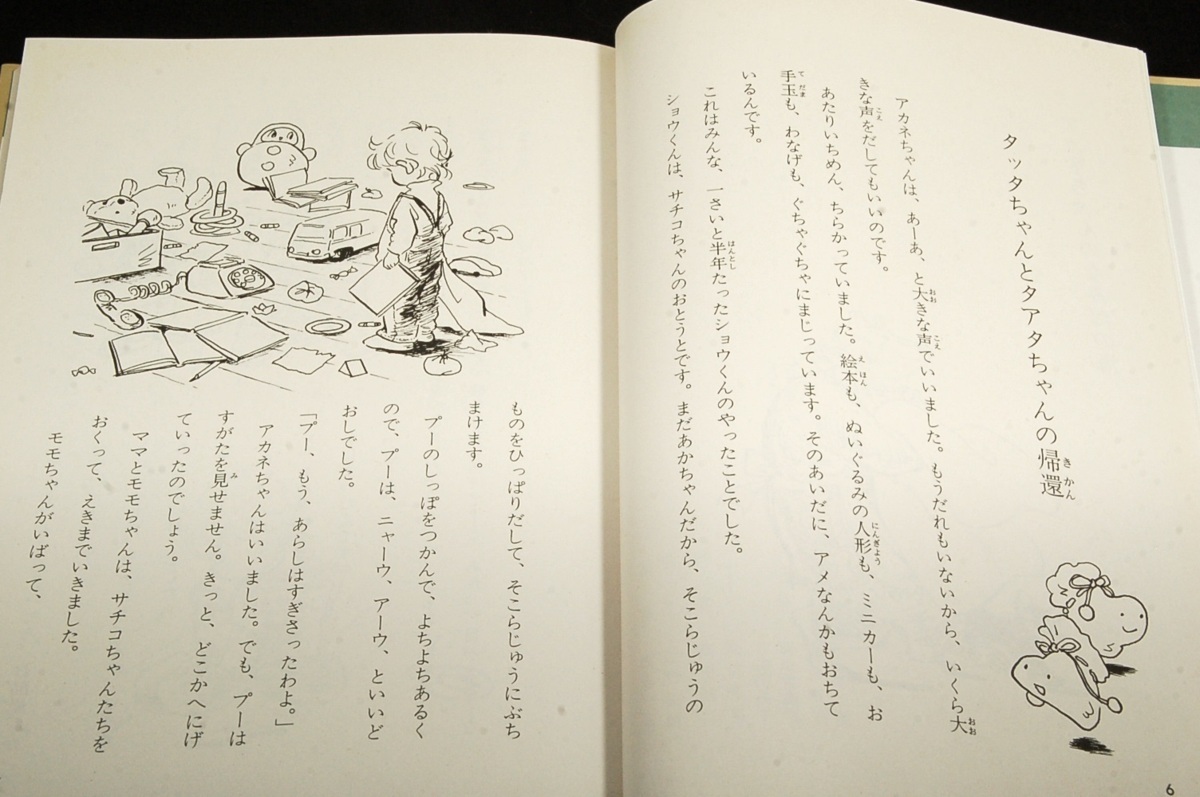 タッタちゃんとタアタちゃんの帰還
きかん
アカネちゃんは、あーあ、と大きな声でいいました。もうだれもいないから、いくら大
おお
こえ
おお
きな声をだしてもいいのです。
こえ
あたりいちめん、ちらかっていました。絵本も、ぬいぐるみの人形も、ミニカーも、お
えほん
にんぎょう
手玉も、わなげも、ぐちゃぐちゃにまじっています。そのあいだに、アメなんかもおちて
てだま
いるんです。
これはみんな、一さいと半年たったショウくんのやったことでした。
はんとし
ショウくんは、サチコちゃんのおとうとです。まだあかちゃんだから、そこらじゅうの
6
ものをひっぱりだして、そこらじゅうにぶち
まけます。
プーのしっぽをつかんで、よちよちあるく
ので、プーは、ニャーウ、アーウ、といいど
おしでした。
「プー、もう、あらしはすぎさったわよ。」
アカネちゃんはいいました。でも、プーは
すがたを見せません。きっと、どこかへにげ
み
ていったのでしょう。
ママとモモちゃんは、サチコちゃんたちを
おくって、えきまでいきました。
モモちゃんがいばって、